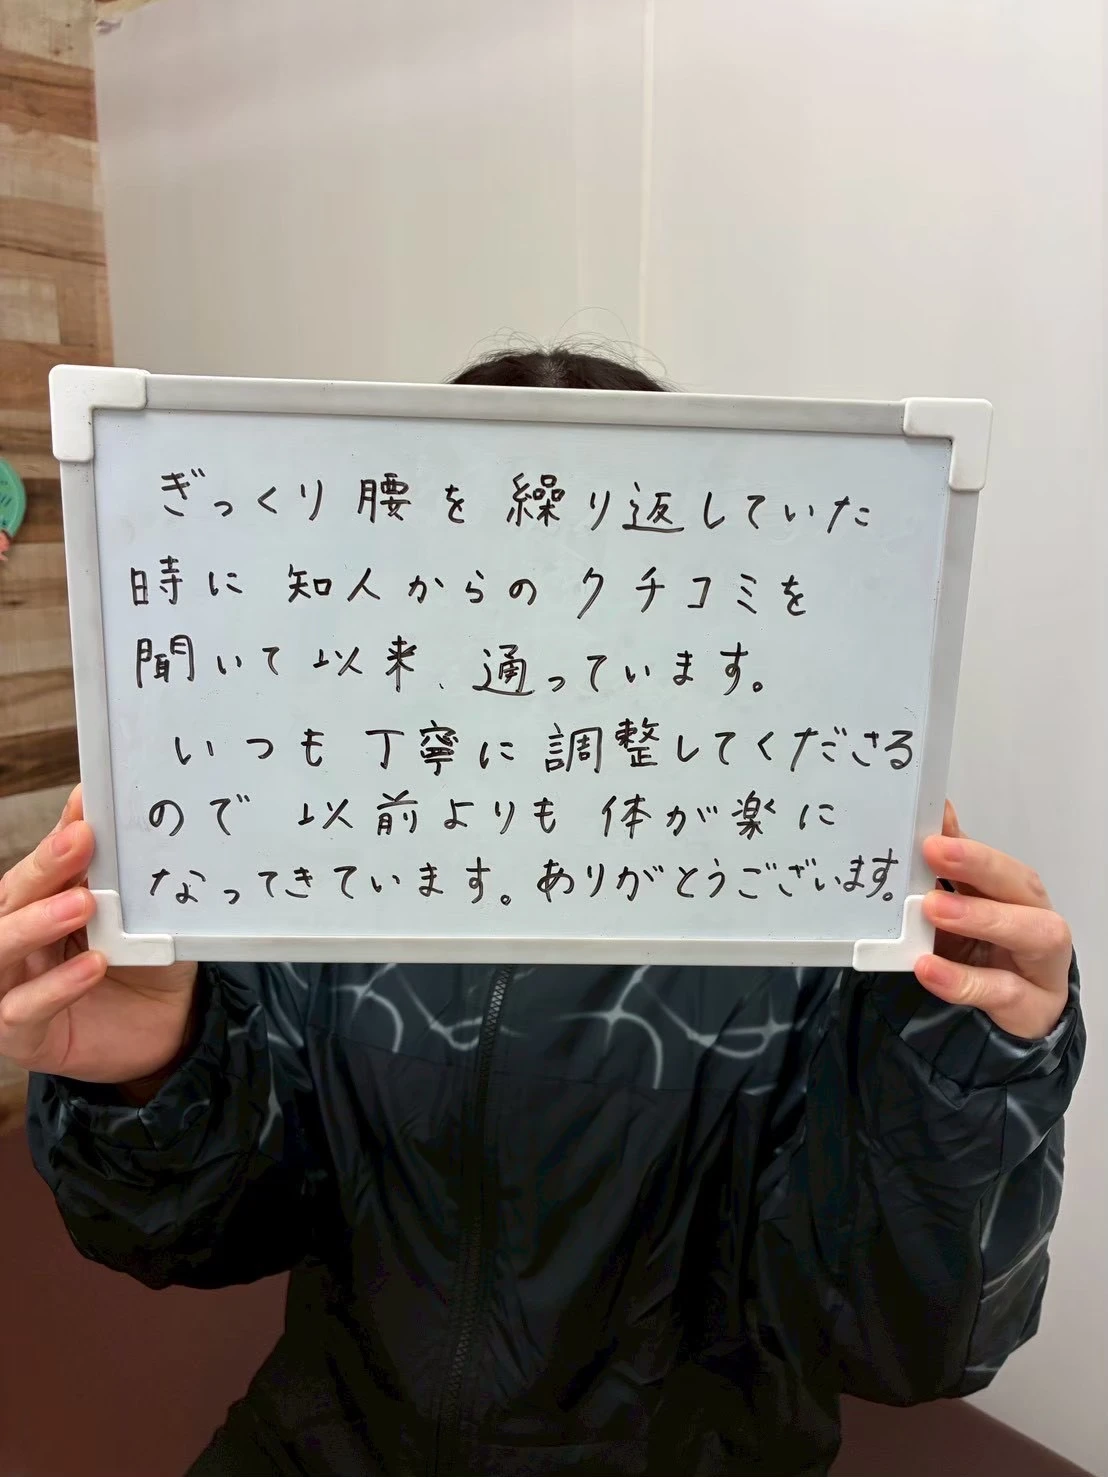 ぎっくり腰を繰り返していた
時に知人からのクチコミを
聞いて以来、通っています。
いつも丁寧に調整してくださる
ので以前よりも体が楽に
なってきています。ありがとうございます。